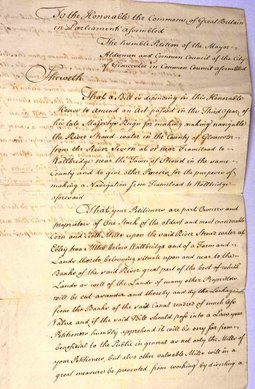 To the Honorable the Commons of Great Britain
in Parliament assembled
The humble Petition of the Mayor
Aldermen and Common Council of the City
of Gloucester in Common Council assembled
Sheweth
That a Bill is depending in this Honorable
House to amend an Act passed in the Third year of
his late Majestys Reign for making navigable
the River Stroud water in the County of Gloucester
from the River Severn at or near Framiload to
Wallbridge near the Town of Stroud in the same
County and to give other Powers for the purpose of
making a Navigation from Framiload to Wallbridge
aforesaid
That your Petitioners are part Owners and
proprietors of One of the oldest and most considerable
Corn and Mills upon the said River Stroud water at
Ebley two Miles below Wallbridge and of a Farm and
Lands thereto belonging situate upon and near to the
Banks of the said River great part of the best of which
Lands as well as the Lands of many other Proprietors
will be cut and thereby and by the Leakages
from the Banks of the said Canal render'd of much less
Value and if the said Bill should pass into a Law your
Petitioners humbly apprehend it will be very far from
beneficial to the Public in general as not only the Mills of
your Petitioners, but also other valuable Mills will in a
great measure be prevented from working by diverting a